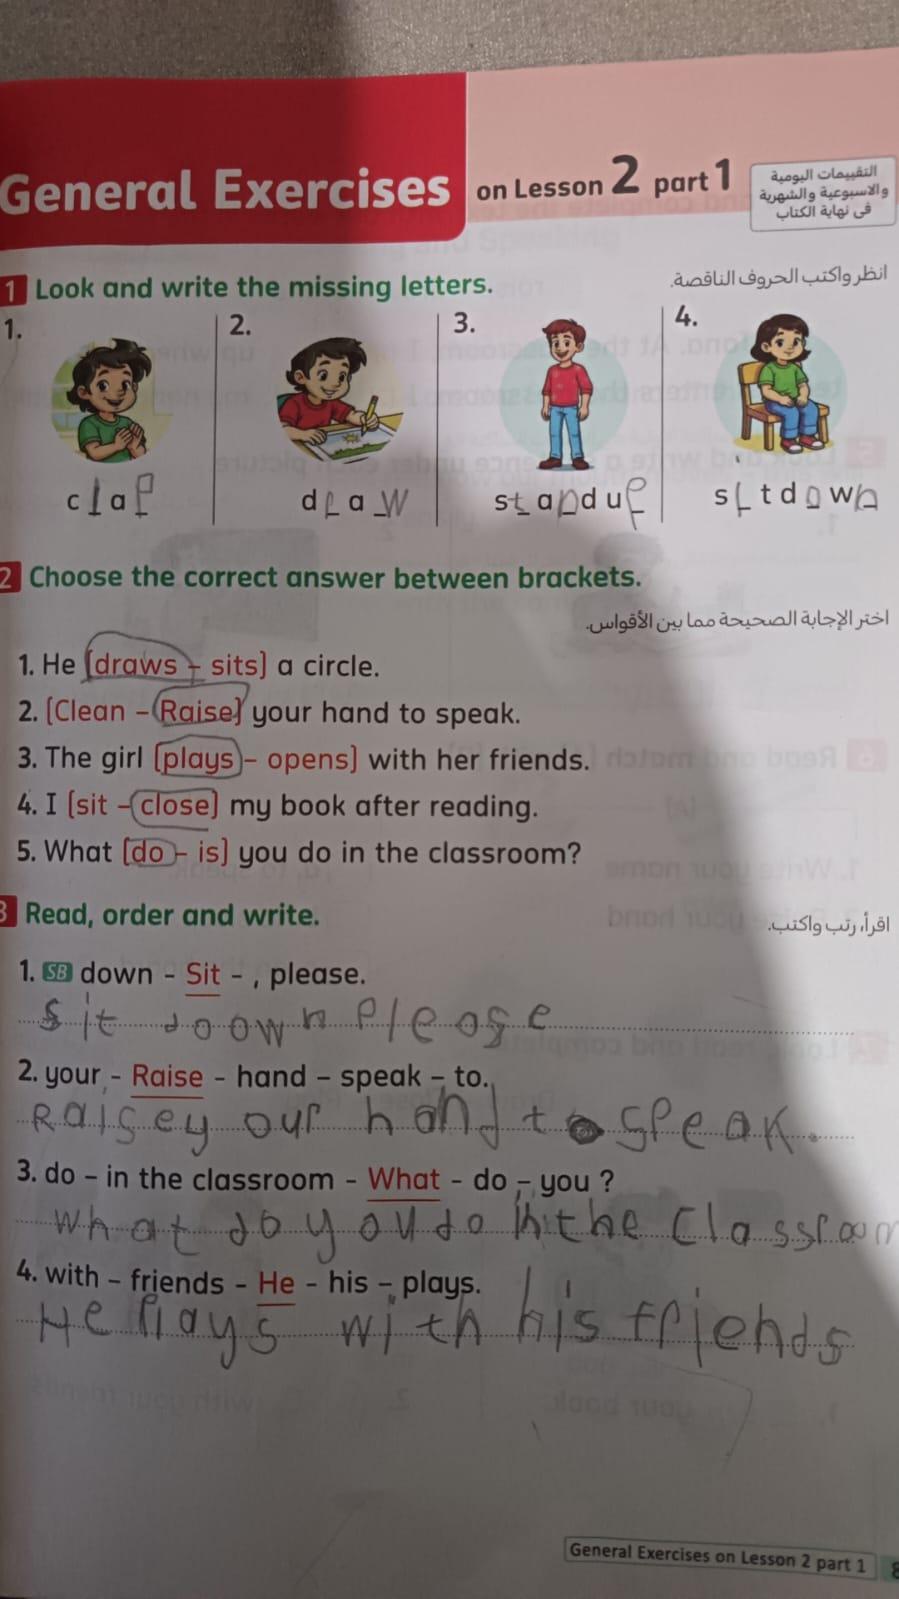 General Exercises on Lesson 2 part 1
التقييمات اليومية
والاسبوعية والشهرية
فى نهاية الكتاب
1 Look and write the missing letters.
انظر واكتب الحروف الناقصة.
1. 2. 3. 4.
clap draw standup sitdown
2 Choose the correct answer between brackets.
اختر الإجابة الصحيحة مما بين الأقواس.
1. He (draws - sits) a circle.
2. (Clean - Raise) your hand to speak.
3. The girl (plays - opens) with her friends.
4. I (sit - close) my book after reading.
5. What (do - is) you do in the classroom?
3 Read, order and write.
اقرأ، رتب واكتب.
1. SB down - Sit - , please.
sit doown please
2. your - Raise - hand - speak - to.
Raisey our hand to speak.
3. do - in the classroom - What - do - you ?
what do you do in the classroom
4. with - friends - He - his - plays.
He plays with his friends
General Exercises on Lesson 2 part 1